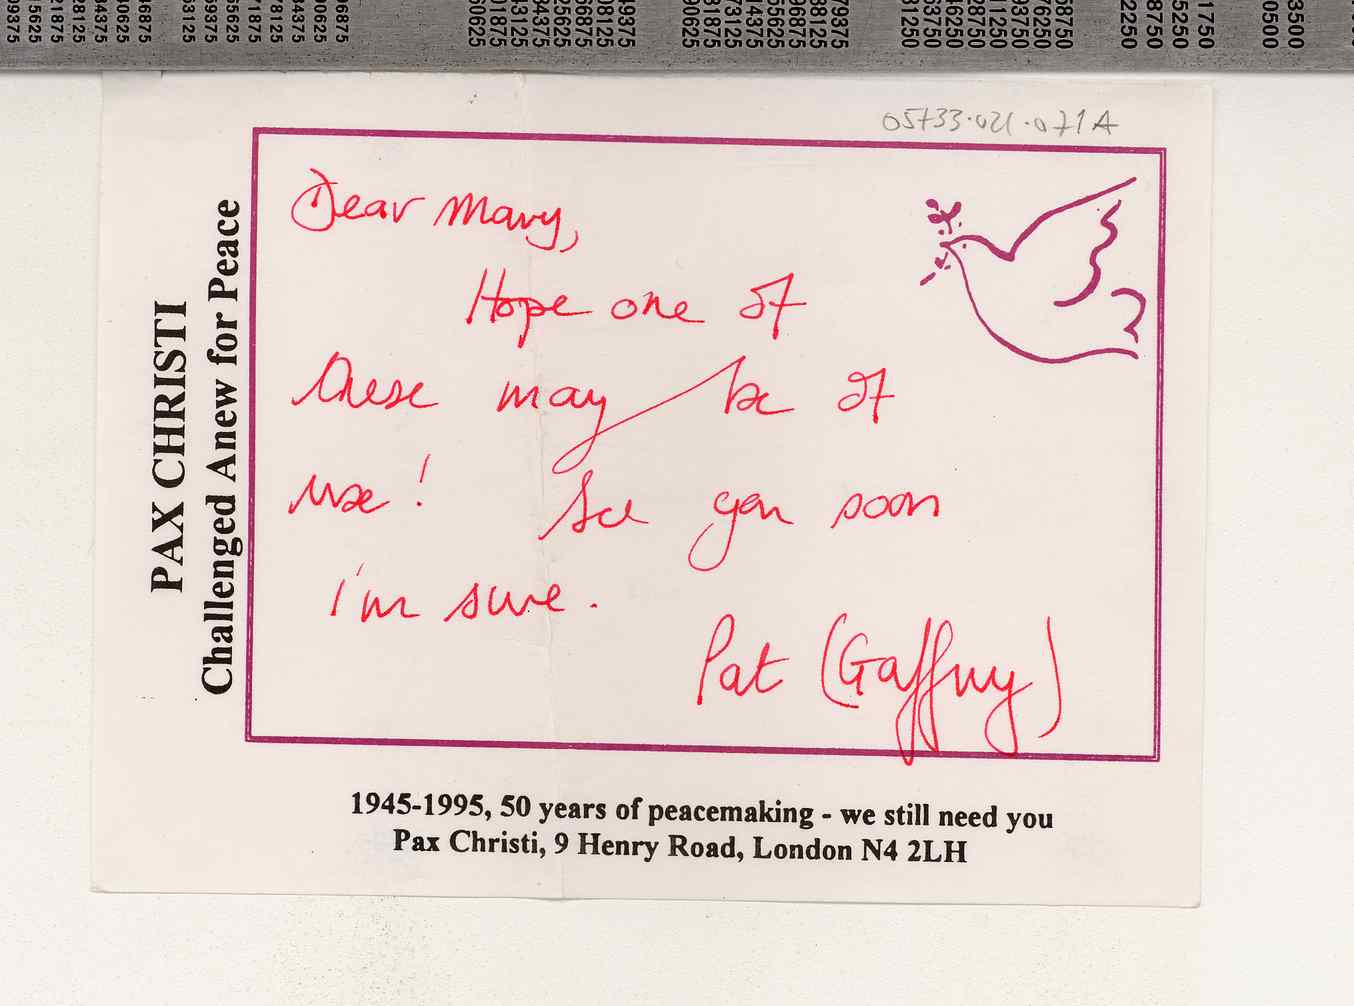 05733.021.071A
PAX CHRISTI
Challenged Anew for Peace
Dear Mary,
Hope one of
these may be of
use! See you soon
i'm sure.
Pat (Gaffney)
1945-1995, 50 years of peacemaking - we still need you
Pax Christi, 9 Henry Road, London N4 2LH